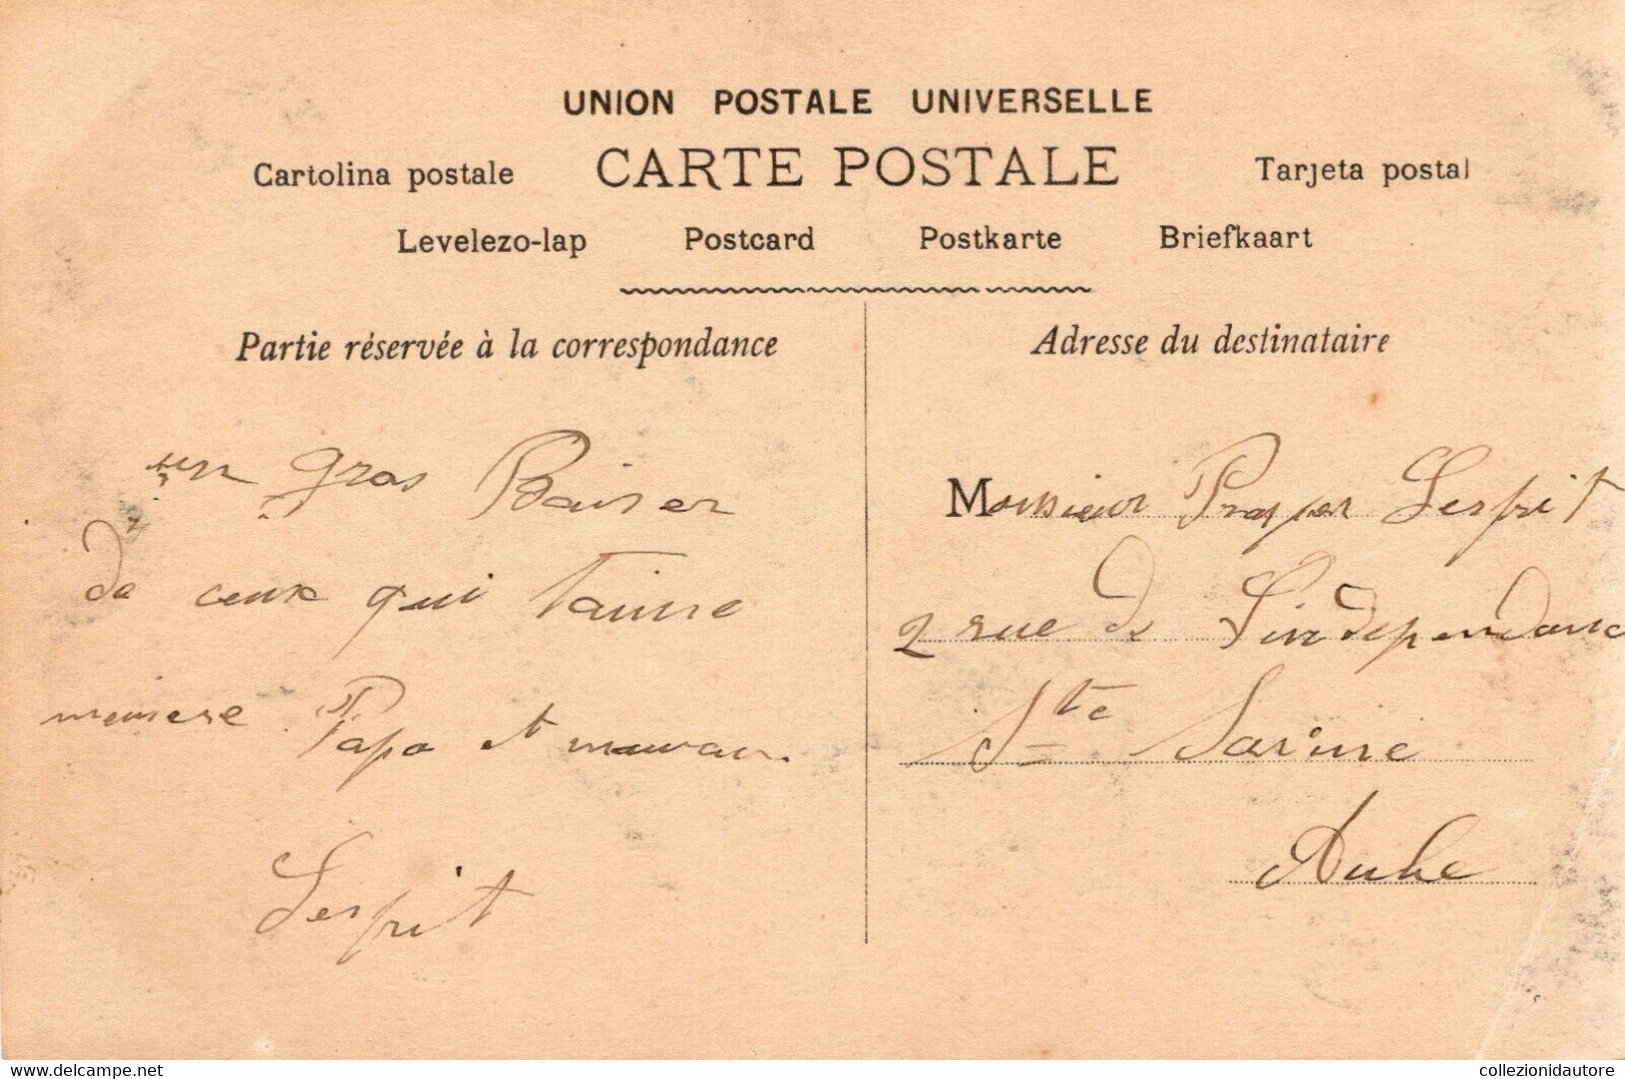 UNION POSTALE UNIVERSELLE
Cartolina postale CARTE POSTALE Tarjeta postal
Levelezo-lap Postcard Postkarte Briefkaart
Partie réservée à la correspondance
un gros Baiser
de ceux qui taime
Papa et
Lesprit
Adresse du destinataire
Monsieur Prosper Lesprit
2 rue de Lindependance
Ste Savine
Aube
delcampe.net
collezionidautore